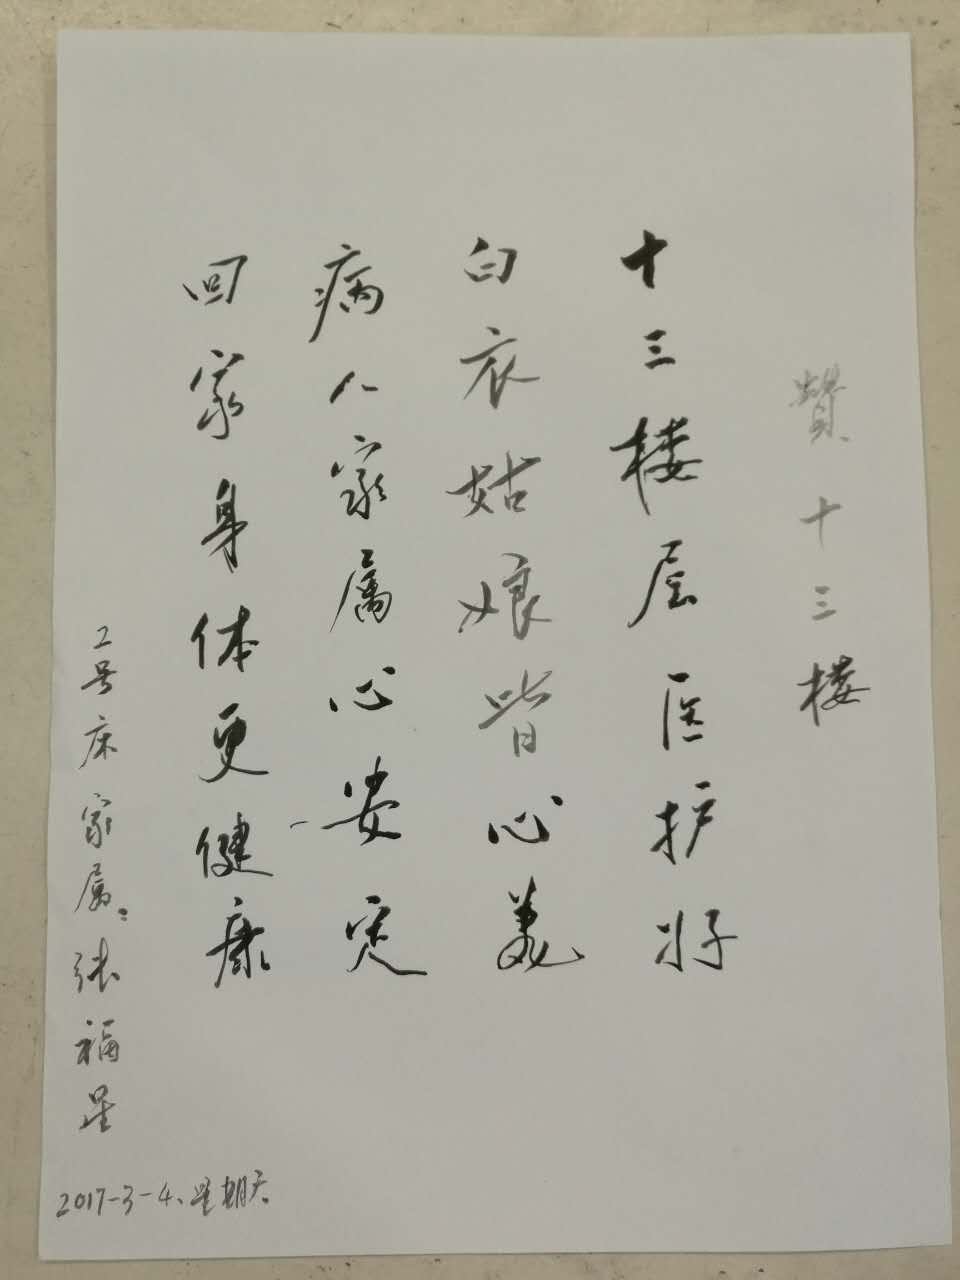 赞十三楼
十三楼层医护好
白衣姑娘皆心美
病人家属心安定
回家身体更健康
2号床家属:张福星
2017-3-4、星期天